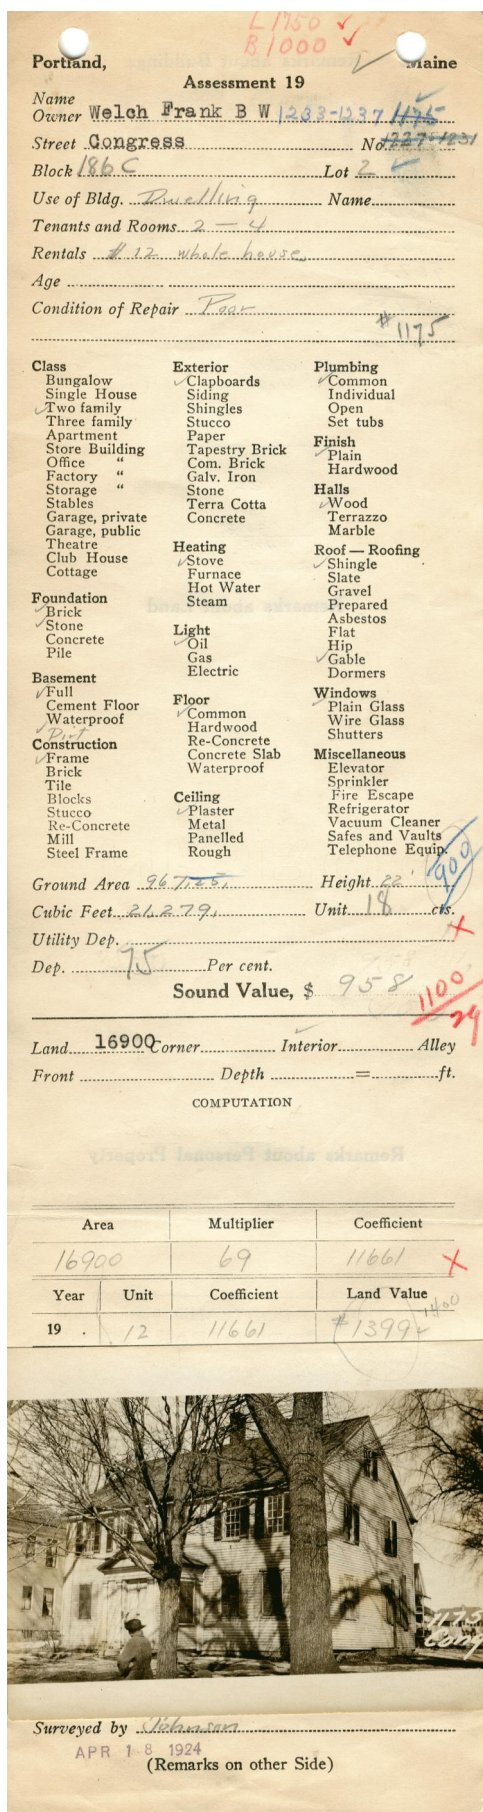 L 1750 ✓
B 1000 ✓
Portland, Maine
Assessment 19
Name
Owner Welch Frank B W 1233-1237 1175
Street Congress No. 1227-1231
Block 186 C Lot 2
Use of Bldg. Dwelling Name
Tenants and Rooms 2 — 4
Rentals # 12 whole house
Age
Condition of Repair Poor
#1175
Class
Bungalow
Single House
✓Two family
Three family
Apartment
Store Building
Office "
Factory "
Storage "
Stables
Garage, private
Garage, public
Theatre
Club House
Cottage
Foundation
✓Brick
✓Stone
Concrete
Pile
Basement
✓Full
Cement Floor
Waterproof
✓Dirt
Construction
✓Frame
Brick
Tile
Blocks
Stucco
Re-Concrete
Mill
Steel Frame
Exterior
✓Clapboards
Siding
Shingles
Stucco
Paper
Tapestry Brick
Com. Brick
Galv. Iron
Stone
Terra Cotta
Concrete
Heating
✓Stove
Furnace
Hot Water
Steam
Light
✓Oil
Gas
Electric
Floor
✓Common
Hardwood
Re-Concrete
Concrete Slab
Waterproof
Ceiling
✓Plaster
Metal
Panelled
Rough
Plumbing
✓Common
Individual
Open
Set tubs
Finish
✓Plain
Hardwood
Halls
✓Wood
Terrazzo
Marble
Roof — Roofing
✓Shingle
Slate
Gravel
Prepared
Asbestos
Flat
Hip
✓Gable
Dormers
Windows
✓Plain Glass
Wire Glass
Shutters
Miscellaneous
Elevator
Sprinkler
Fire Escape
Refrigerator
Vacuum Cleaner
Safes and Vaults
Telephone Equip.
900
Ground Area 967 Height 22'
Cubic Feet 21,279 Unit 18 cts.
Utility Dep. X
Dep. 75 Per cent.
Sound Value, $ 958
1100
29
Land 16900 Corner Interior Alley
Front Depth = ft.
COMPUTATION
Area Multiplier Coefficient
16900 69 11661 X
Year Unit Coefficient Land Value
1400
19 . 12 11661 $1399
1173
Cong
Surveyed by Johnson
APR 18 1924
(Remarks on other Side)